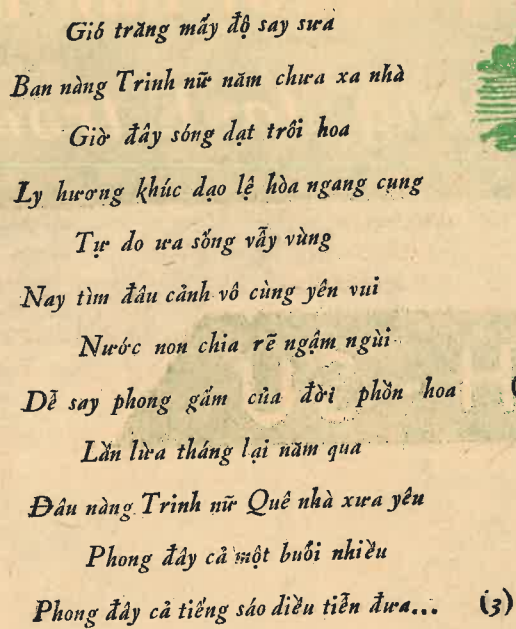 Gió trăng mấy độ say sưa
Bạn nàng Trinh nữ năm chưa xa nhà
Giờ đây sóng dạt trôi hoa
Ly hương khúc dạo lệ hòa ngang cung
Tự do ưa sống vẫy vùng
Nay tìm đâu cảnh vô cùng yên vui
Nước non chia rẽ ngậm ngùi
Dễ say phong gấm của đời phồn hoa
Lần lừa tháng lại năm qua
Đâu nàng Trinh nữ Quê nhà xưa yêu
Phong đây cả một buổi nhiều
Phong đây cả tiếng sáo diều tiễn đưa... (3)